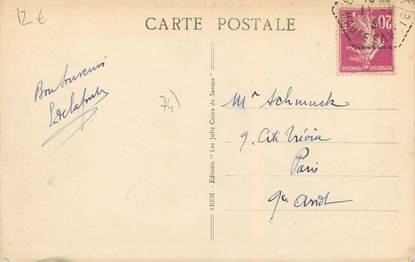 12 €
CARTE POSTALE
20c
Bon Souvenir
74)
ABEM. - Edition "Les Jolis Coins de Savoie"
Mr Schmuck
9. Cité Trévise
Paris
9e Arrdt